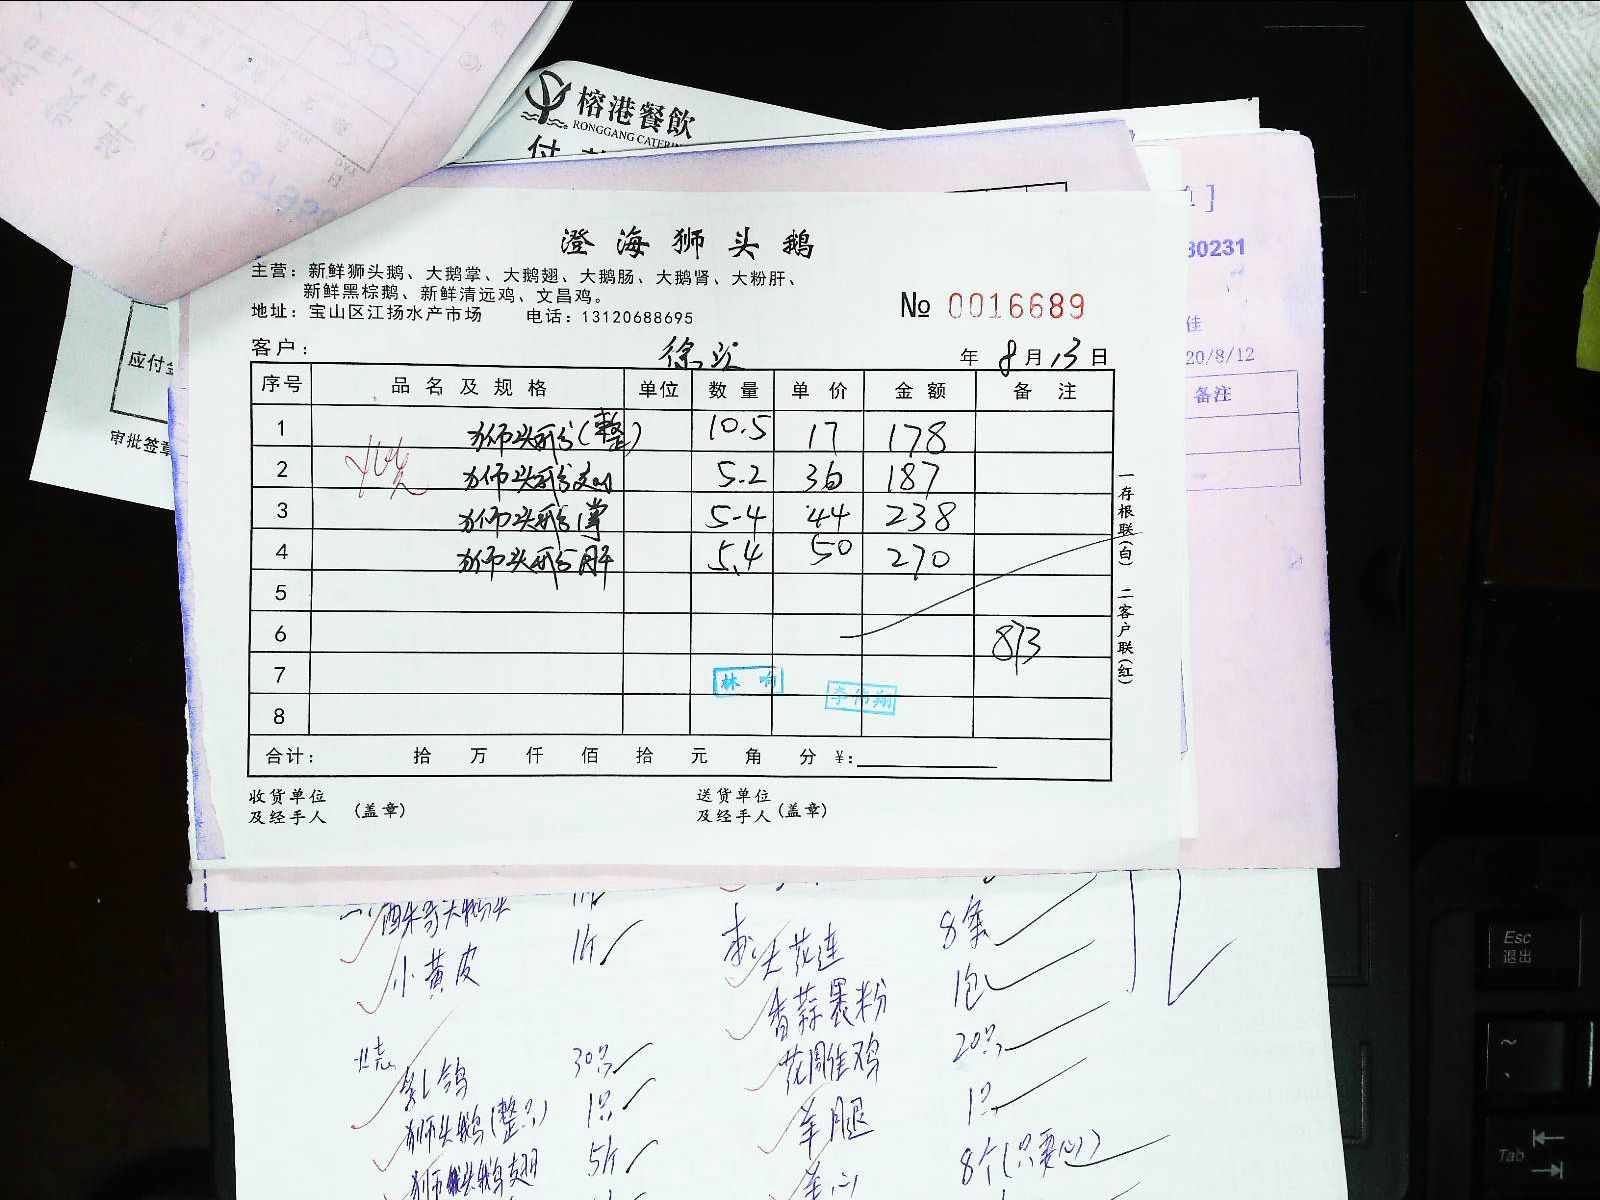 榕港餐飲
RONGGANG CATERIN
付
澄海狮头鹅
主营：新鲜狮头鹅、大鹅掌、大鹅翅、大鹅肠、大鹅肾、大粉肝、
新鲜黑棕鹅、新鲜清远鸡、文昌鸡。
地址：宝山区江扬水产市场 电话：13120688695
№ 0016689
80231
佳
20/8/12
备注
应付金
审批签章
客户： 年 8月13日
序号 品名及规格 单位 数量 单价 金额 备注
1 狮头鹅(整) 10.5 17 178
2 狮头鹅翅 5.2 36 187
3 狮头鹅掌 5.4 44 238
4 狮头鹅肝 5.4 50 270
5
6 873
7 林响
李伟翔
8
合计： 拾 万 仟 佰 拾 元 角 分 ¥：
一存根联(白) 二客户联(红)
收货单位及经手人 (盖章)
送货单位及经手人 (盖章)
小黄皮 1斤
大花莲 8条
香蒜裹粉 1包
烧
乳鸽 30只
花雕鸡 20只
狮头鹅(整只) 1只
羊腿 1只
狮头鹅翅 5斤
8个(只要心)
Esc
退出
~
Tab